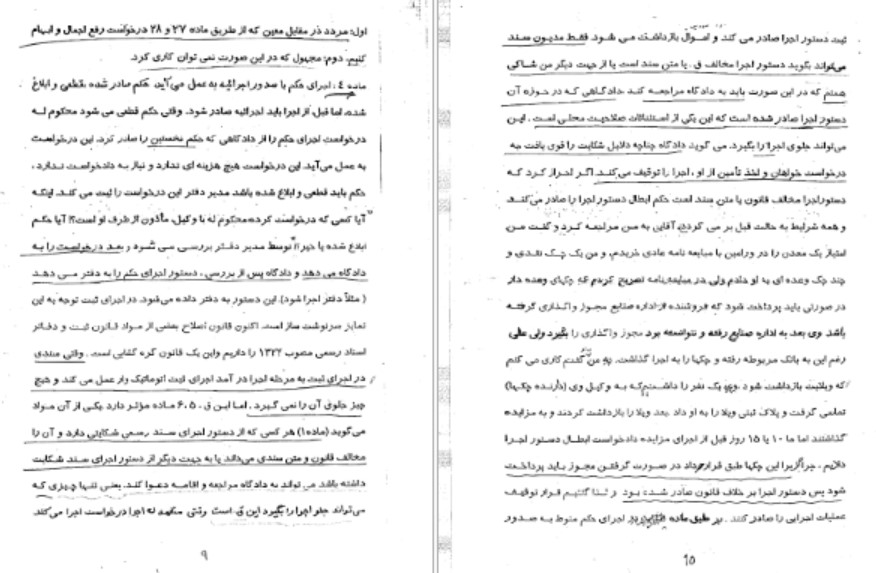 اول: مردد در مقابل معین که از طریق ماده ۲۷ و ۲۸ درخواست رفع اجمال و ابهام
کنیم. دوم: مجهول که در این صورت نمی توان کاری کرد.
ماده ٤: اجرای حکم با صدور اجرائیه به عمل می‌آید. حکم صادر شده، قطعی و ابلاغ
شده، اما قبل از اجرا باید اجرائیه صادر شود. وقتی حکم قطعی می شود محکوم له
درخواست اجرای حکم را از دادگاهی که حکم نخستین را صادر کرد. این درخواست
به عمل می‌آید. این درخواست هیچ هزینه ای ندارد و نیاز به دادخواست ندارد.
حکم باید قطعی و ابلاغ شده باشد مدیر دفتر این درخواست را ثبت می کند. اینکه
آیا کسی که درخواست کرده محکوم له یا وکیل، مأذون از طرف او است؟! آیا حکم
ابلاغ شده یا خیر!! توسط مدیر دفتر بررسی می شود و بعد درخواست را به
دادگاه می دهد و دادگاه پس از بررسی، دستور اجرای حکم را به دفتر می دهد
(مثلاً دفتر اجرا شود). این دستور به دفتر داده می‌شود. در اجرای ثبت توجه به این
تمایز سرنوشت ساز است. اکنون قانون اصلاح بعضی از مواد قانون ثبت و دفاتر
اسناد رسمی مصوب ۱۳۲۲ را داریم واین یک قانون گره گشایی است. وقتی سندی
در اجرای ثبت به مرحله اجرا در آمد اجرای ثبت اتوماتیک وار عمل می کند و هیچ
چیز جلوی آن را نمی گیرد. اما این ق. ۵، ۶ ماده مؤثر دارد. یکی از آن مواد
می‌گوید (ماده۱) هر کسی که از دستور اجرای سند رسمی شکایتی دارد و آن را
مخالف قانون و متن سندی می‌داند یا به جهت دیگر از دستور اجرای سند شکایت
داشته باشد می تواند به دادگاه مراجعه و اقامه دعوا کند. یعنی تنها چیزی که
می‌تواند جلو اجرا را بگیرد این ق. است وقتی متعهد له اجرا درخواست اجرا می‌کند
۹
ثبت دستور اجرا صادر می کند و اموال بازداشت می شود. فقط مدیون سند
می‌تواند بگوید دستور اجرا مخالف ق. یا متن سند است یا از جهت دیگر من شاکی
هستم که در این صورت باید به دادگاه مراجعه کند. دادگاهی که در حوزه آن
دستور اجرا صادر شده است که این یکی از استثنائات صلاحیت محلی است. این
می‌تواند جلوی اجرا را بگیرد. می گوید دادگاه چنانچه دلایل شکایت را قوی یافت به
درخواست خواهان و اخذ تأمین از او، اجرا را توقیف می‌کند. اگر احراز کرد که
دستوراجرا مخالف قانون یا متن سند است حکم ابطال دستور اجرا را صادر می‌کند
و همه شرایط به حالت قبل بر می گردد. آقایی به من مراجعه کرد و گفت من
امتیاز یک معدن را در ورامین با مبایعه نامه عادی خریدم، و من یک چک نقدی و
چند چک وعده ای به او دادم ولی در مبایعه‌نامه تصریح کردم که چکهای وعده دار
در صورتی باید پرداخت شود که فروشنده از اداره صنایع مجوز واگذاری گرفته
باشد. وی بعد به اداره صنایع رفته و نتوانسته بود مجوز واگذاری را بگیرد ولی علی
رغم این به بانک مربوطه رفته و چکها را به اجرا گذاشت. به من گفتم کاری می کنم
که ویلایت بازداشت شود. یک نفر را داشتم که به وکیل وی (دارنده چکها)
تماس گرفت و پلاک ثبتی ویلا را به او داد. بعد ویلا را بازداشت کردند و به مزایده
گذاشتند اما ما ۱۰ یا ۱۵ روز قبل از اجرای مزایده دادخواست ابطال دستور اجرا
دادیم. چرا؟زیرا این چکها طبق قرارداد در صورت گرفتن مجوز باید پرداخت
شود پس دستور اجرا بر خلاف قانون صادر شده بود و لذا گفتیم قرار توقیف
عملیات اجرایی را صادر کنند. بر طبق ماده اجرای حکم منوط به صدور
۱۵